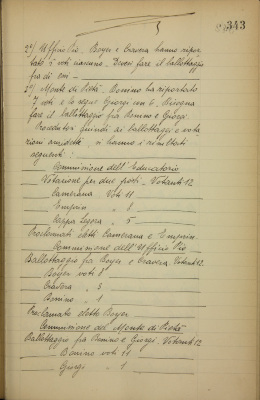 343
2º/ Ufficio Pio. Boyer e Cravera hanno ripor-
tato 5 voti ciascuno. Devesi fare il ballottaggio
fra di essi -
3º/ Monte di Pietà. Bonino ha riportato
7 voti e lo segue Giorgi con 6. Bisogna
fare il ballottaggio fra Bonino e Giorgi.
Proceduto quindi ai ballottaggi e vota
zioni anzidette, si hanno i risultati
seguenti:
Commissione dell'Educatorio
Votazione per due posti - Votanti 12
Camerana Voti 11
" 8
" 5
Proclamati eletti Camerana e
Commissione dell'Ufficio Pio
Ballottaggio fra Boyer e Cravera. Votanti 12
Boyer voti 8
Cravera " 3
Bonino " 1
Proclamato eletto Boyer
Commissione del Monte di Pietà
Ballottaggio fra Bonino e Giorgi. Votanti 12
Bonino voti 11
Giorgi " 1